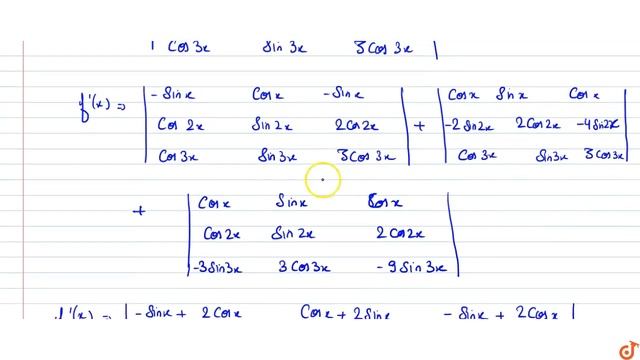 | Cos 3x Sin 3x 3 Cos 3x |
f'(x) = | - Sin x Cos x - Sin x | + | Cos x Sin x Cos x |
| Cos 2x Sin 2x 2 Cos 2x | | -2 Sin 2x 2 Cos 2x -4 Sin 2x |
| Cos 3x Sin 3x 3 Cos 3x | | Cos 3x Sin 3x 3 Cos 3x |
+ | Cos x Sin x Cos x |
| Cos 2x Sin 2x 2 Cos 2x |
| -3 Sin 3x 3 Cos 3x - 9 Sin 3x |
f'(x) = | - Sin x + 2 Cos x Cos x + 2 Sin x - Sin x + 2 Cos x |